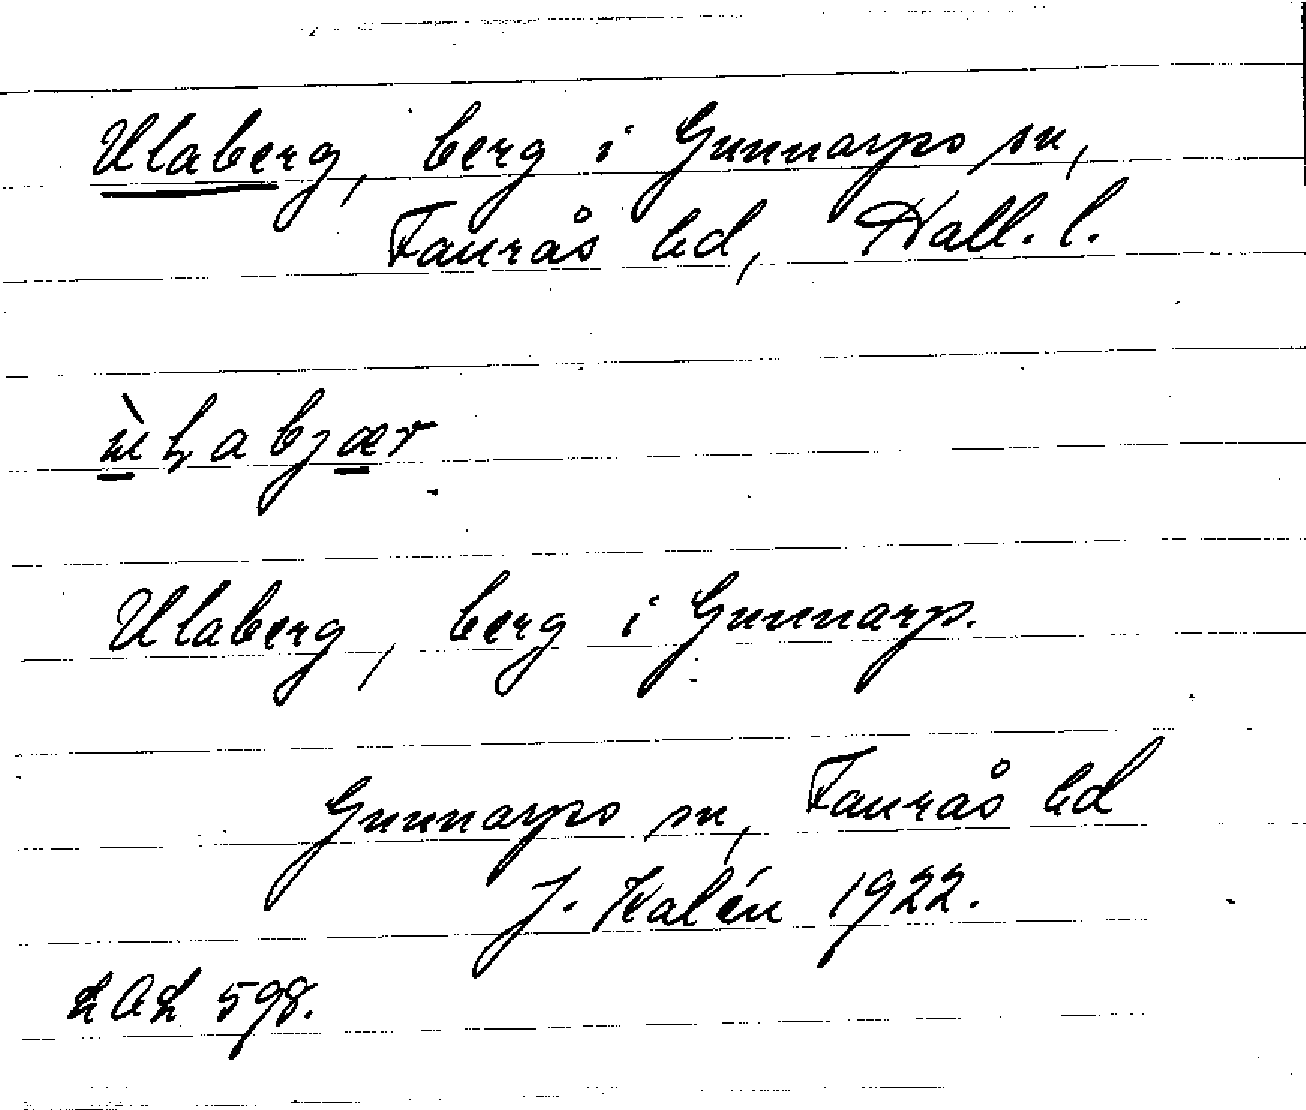 Ulaberg, berg i Gunnarps sn,
Faurås hd, Hall. l.
Ulaberg, berg i Gunnarp.
Gunnarps sn, Faurås hd
J. Kalén 1922.
LAL 598.